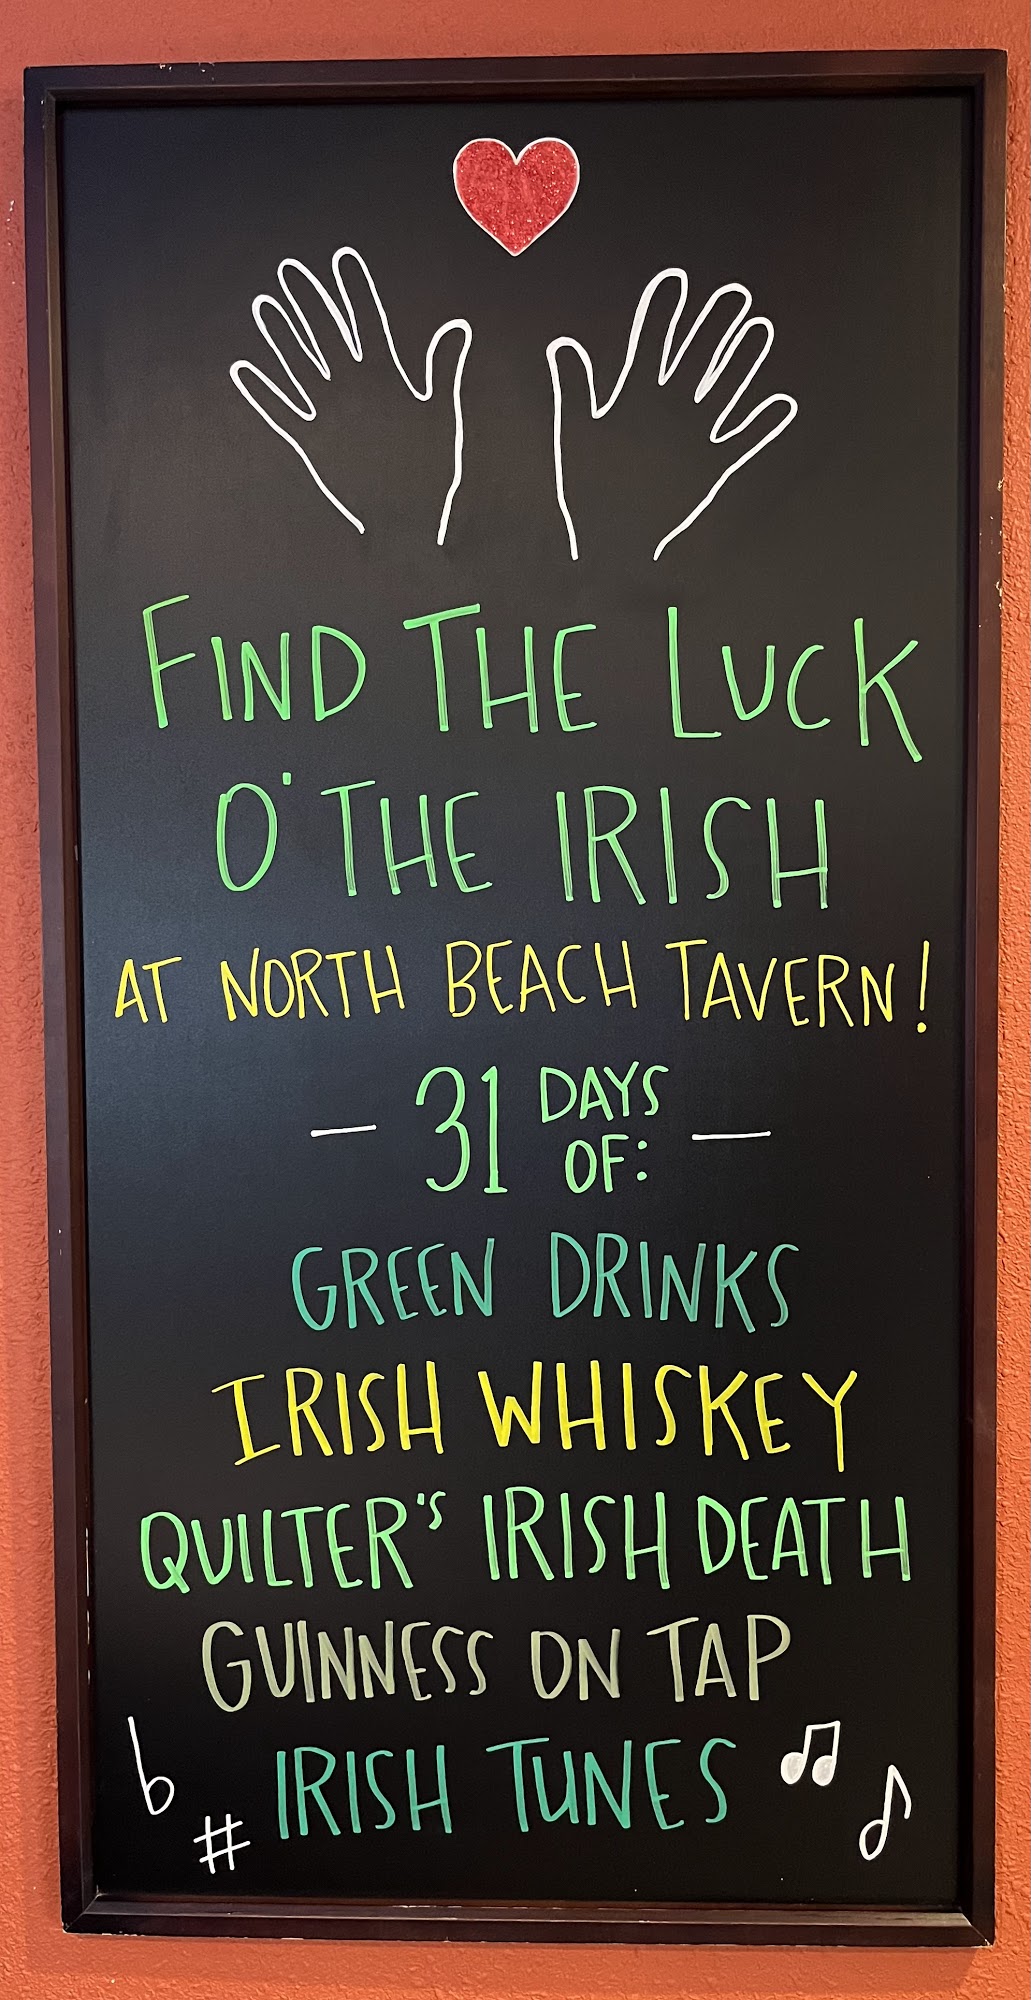 FIND THE LUCK
O' THE IRISH
AT NORTH BEACH TAVERN!
— 31 DAYS OF: —
GREEN DRINKS
IRISH WHISKEY
QUILTER'S IRISH DEATH
GUINNESS ON TAP
IRISH TUNES